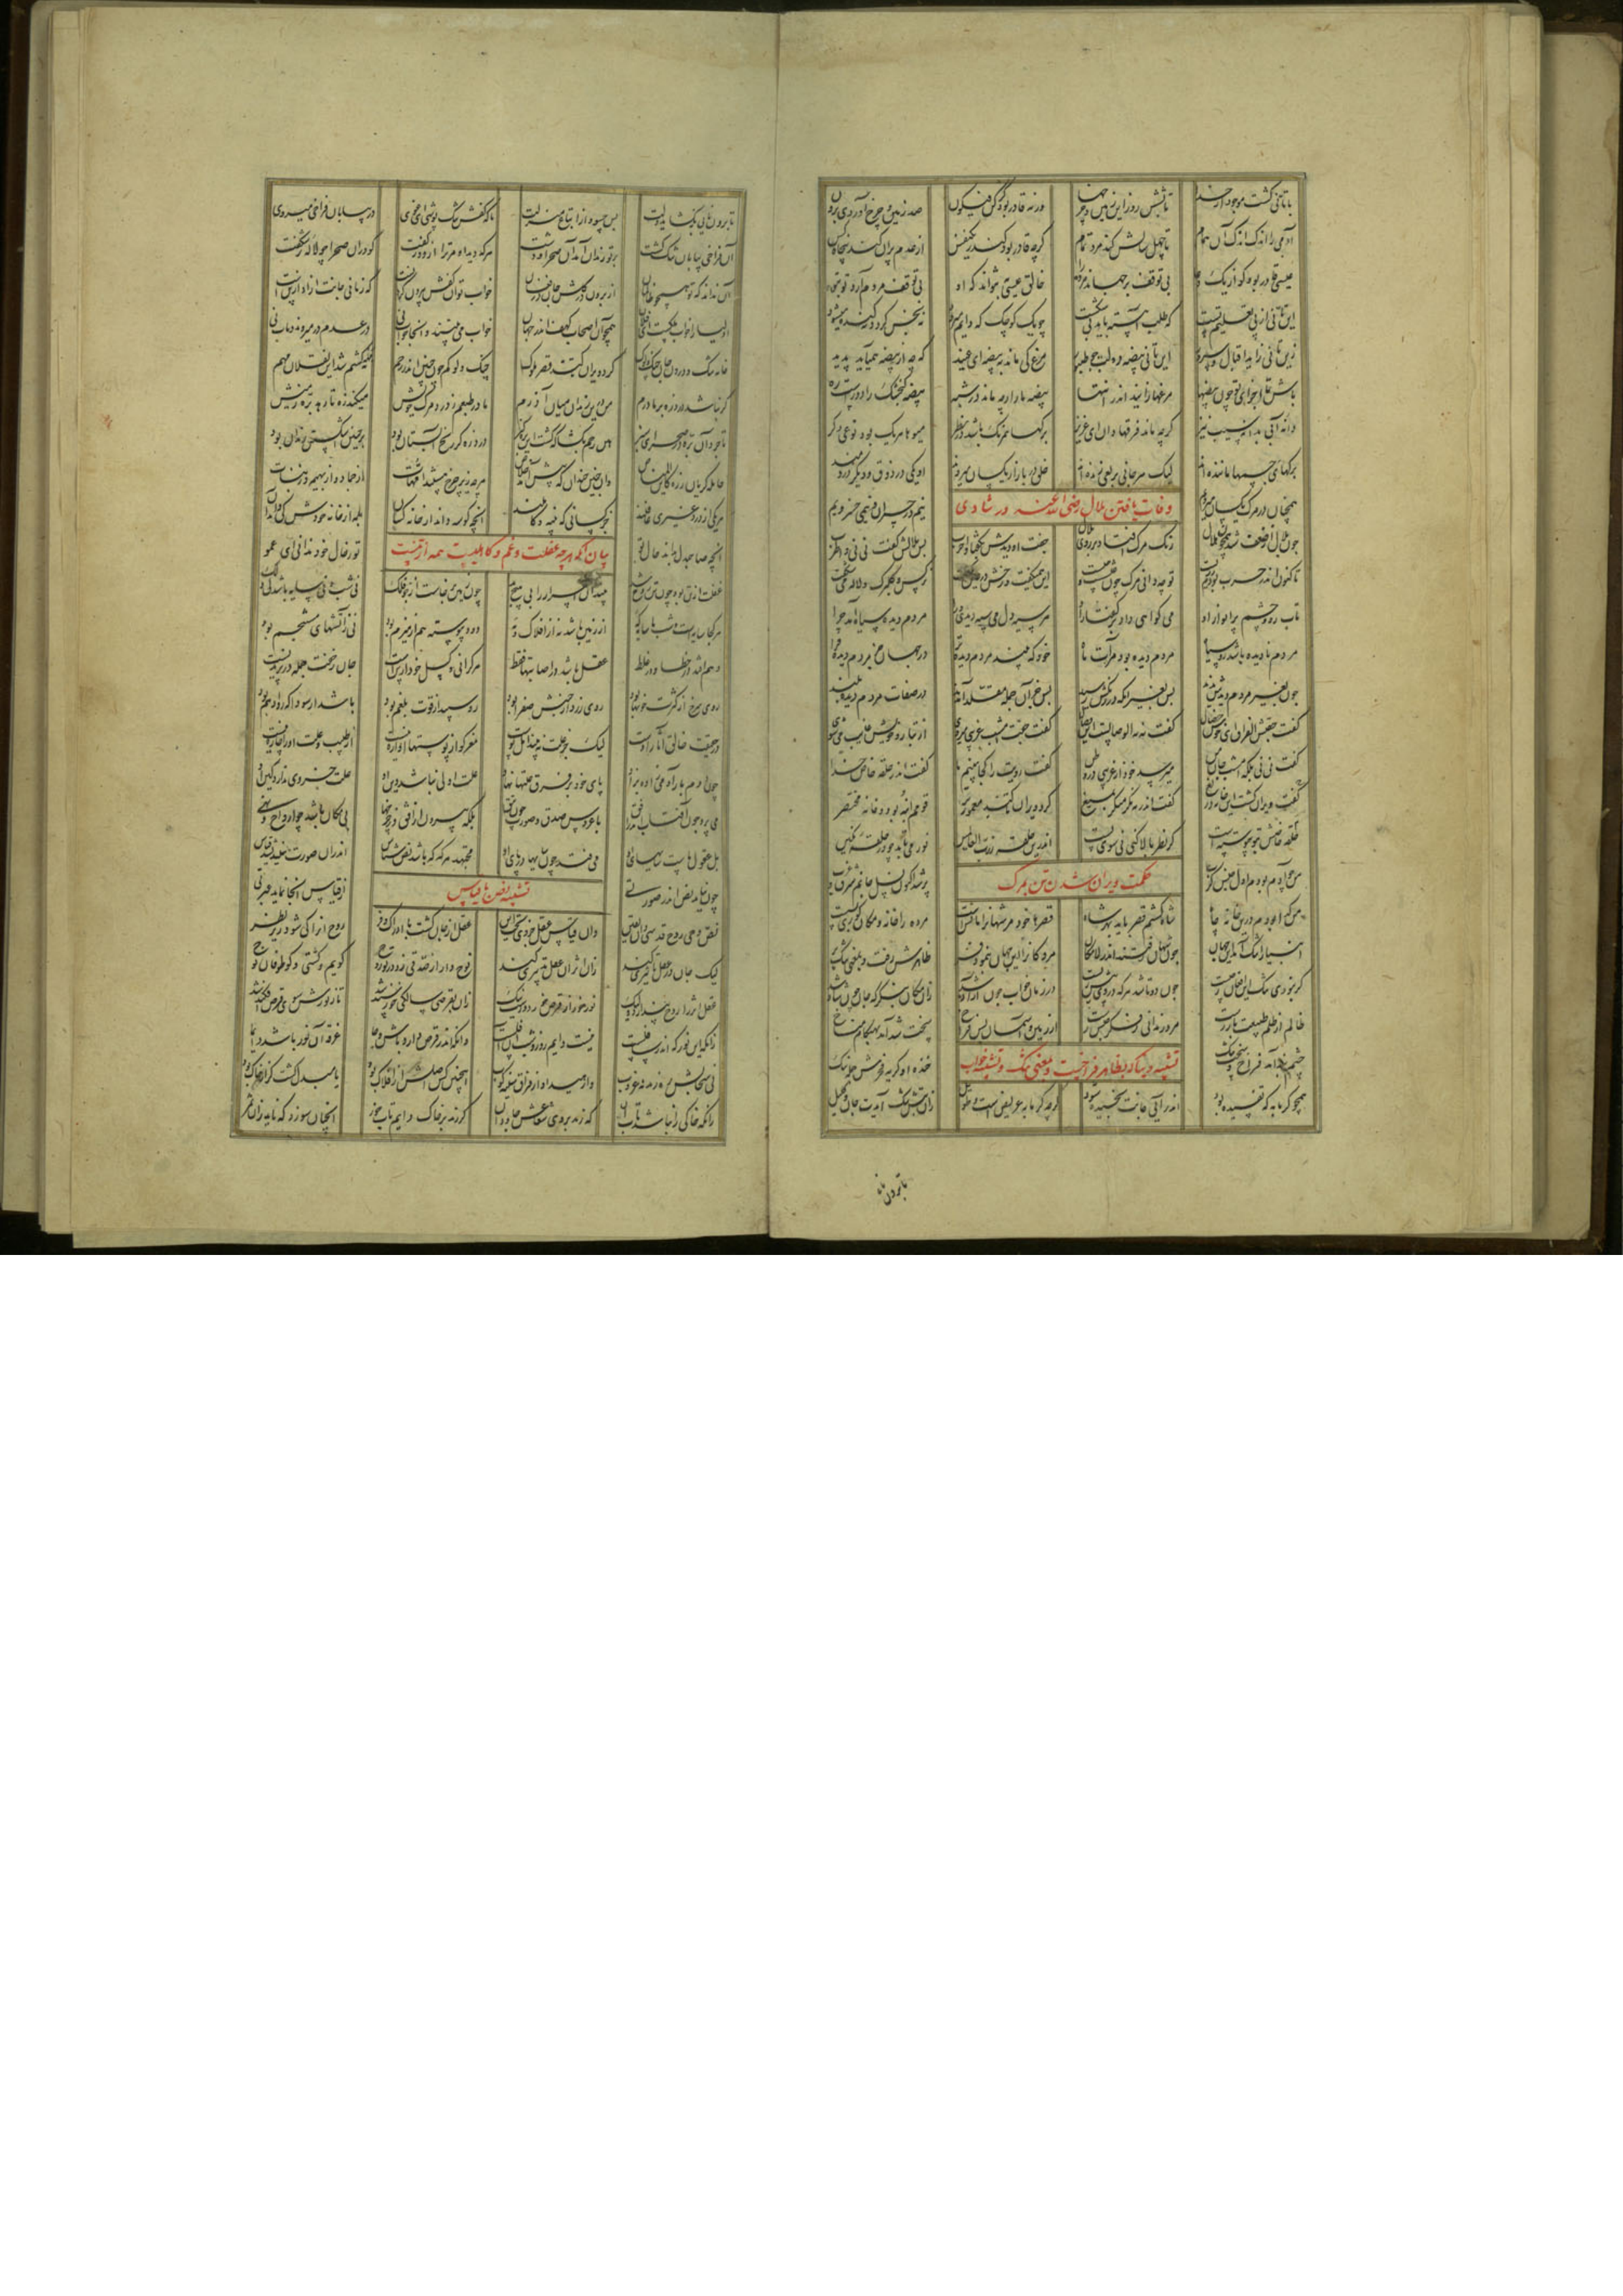 با تانی گشت موجود از خدا تا بشش روز این زمین و چرخها ورنه قادر بود کز کن فیکون صد زمین و چرخ آوردی برون
آدمی را اندک اندک آن همام تا چهل سالش کند مرد تمام گرچه قادر بود کاندر یکنفس از عدم پران کند پنجاه کس
عیسی قادر بود کو از یک دعا بی توقف برجهاند مرده را خالق عیسی بنتواند که او بی توقف مردم آرد تو بتو
این تانی از پی تعلیم تست که طلب آهسته باید بی شکست جویک کوچک که دایم میرود نی نجس گردد نه گنده میشود
زین تانی زاید اقبال و سرور این تانی بیضه دولت چون طیور مرغ کی ماند به بیضه ای عنید گرچه از بیضه همیآید پدید
باش تا اجزای تو چون بیضها مرغها زایند اندر انتها بیضه مار ارچه ماند در شبه بیضه گنجشک را دورست ره
دانه آبی بدانه سیب نیز گرچه ماند فرقها دان ای عزیز برگها همرنگ باشد در نظر میوها هر یک بود نوعی دگر
برگهای جسمها ماننده اند لیک هر جانی بریعی زنده اند خلق در بازار یکسان میروند آن یکی در ذوق و دیگر دردمند
همچنان در مرگ یکسان میرویم نیم در خسران و نیمی خسرویم
وفات یافتن بلال رضی الله عنه در شادی
چون بلال از ضعف شد همچون هلال رنگ مرگ افتاد بر روی بلال جفت او دیدش بگفتا وا حرب پس بلالش گفت نی نی وا طرب
تا کنون اندر حرب بودم ز زیست تو چه دانی مرگ چون عیشست و چیست این همیگفت و رخش در عین گفت نرگس و گلبرگ و لاله میشگفت
تاب رو و چشم پر انوار او می گواهی داد بر گفتار او هر سیه دل می سیه دیدی ورا مردم دیده سیاه آمد چرا
مردم نادیده باشد رو سیاه مردم دیده بود مرآت ماه خود که بیند مردم دیده ترا در جهان جز مردم دیده فزا
چون بغیر مردم دیدهش ندید پس بغیر او که در رنگش رسید پس جز آن جمله مقلد آمدند در صفات مردم دیده بلند
گفت جفتش الفراق ای خوش خصال گفت نه نه الوصالست الوصال گفت جفت امشب غریبی میروی از تبار و خویش غایب میشوی
گفت نی نی بلکه امشب جان من میرسد خود از غریبی در وطن گفت رویت را کجا بینیم ما گفت اندر حلقه خاص خدا
حلقه خاصش بتو پیوسته است گر نظر بالا کنی نی سوی پست اندرین حلقه ز رب العالمین نور می تابد چو در حلقه نگین
گفت ویران گشت این خانه دریغ گفت اندر مه نگر منگر بمیغ کرد ویران تا کند معمورتر قومم انبه بود و خانه مختصر
حکمت ویران شدن تن بمرگ
من چو آدم بودم اول حبس کرب پر شد اکنون نسل جانم شرق و غرب
من گدا بودم درین خانه چو چاه شاه گشتم قصر باید بهر شاه قصرها خود مر شهانرا مانسست مرده را خانه و مکان گوری بسست
انبیا را تنگ آمد این جهان چون شهان رفتند اندر لامکان مردگانرا این جهان بنمود فر ظاهرش زفت و بمعنی تنگ بر
گر نبودی تنگ این افغان ز چیست چون دو تا شد هر که در وی بیش زیست در زمان خواب چون آزاد شد زان مکان بنگر که جان چون شاد شد
ظالم از ظلم طبیعت باز رست مرد زندانی ز فکر حبس جست این زمین و آسمان بس فراخ سخت تنگ آمد بهنگام مناخ
تشبیه دنیا که بظاهر فراخست و بمعنی تنگ و تشبیه خواب
چشم بند آمد فراخ و سخت تنگ خنده او گریه فخرش جمله ننگ
همچو گرمابه که تفسیده بود اندر آیی جانت پخسیده شود گرچه گرمابه عریضست و طویل زان تبش تنگ آیدت جان و کلیل
تا برون نایی
تا برون نایی بنگشاید دلت پس چه سود از اتساع منزلت یا که کفش تنگ پوشی ای غوی در بیابان فراخی میروی
آن فراخی بیابان تنگ گشت بر تو زندان آمد آن صحرا و دشت هر که دید او مر ترا از دور گفت کو در آن صحرا چو لاله بر شگفت
آن نداند که تو همچو ظالمان از برون در گلشنی جان در فغان خواب تو آن کفش بیرون کردنست که زمانی جانت آزاد از تنست
اولیا را خواب ملکست ای فلان همچو آن اصحاب کهف اندر جهان خواب می بینند و آنجا خواب نی در عدم در میروند و باب نی
خانه تنگ و درون جان چنگلوک کرد ویران تا کند قصر ملوک چنگلوکم چون جنین اندر رحم نه مهه گشتم شد این نقلان مهم
گر نباشد درد زه بر مادرم من درین زندان میان آذرم مادر طبعم ز درد مرگ خویش میکند زه تا رهد بره ز میش
تا چرد آن بره در صحرای سبز هین رحم بگشا که گشت این بره گبز درد زه گر رنج آبستان بود بر جنین اشکستن زندان بود
حامله گریان ز زه کاین المناص وان جنین خندان که پیش آمد خلاص هر چه زیر چرخ هستند امهات از جماد و از بهیمه وز نبات
هر یکی از درد غیری غافلند جز کسانی که نبیه و کاملند آنچه کوسه داند از خانه کسان بلمه از خانه خودش کی داند آن
آنچه صاحبدل بداند حال تو تو ز حال خود ندانی ای عمو
بیان آنکه هر چه غفلت و غم و کاهلیست همه از تنست
غفلت از تن بود چون تن روح شد بیند او اسرار را بی هیچ بد چون زمین برخاست از جو فلک نی شب و نی سایه باشد لی و لک
هر کجا سایه است و شب یا سایگه از زمین باشد نه از افلاک و مه دود پیوسته هم از هیزم بود نی ز آتشهای مستنجم بود
وهم افتد در خطا و در غلط عقل باشد در اصابتها فقط هر گرانی و کسل خود از تنست جان ز خفت جمله در پریدنست
روی سرخ از کثرت خونها بود روی زرد از جنبش صفرا بود رو سپید از قوت بلغم بود باشد از سودا که رو ادهم بود
در حقیقت خالق آثار اوست لیک جز علت نبیند اهل پوست مغز کو از پوستها آواره نیست از طبیب و علت او را چاره نیست
چون دوم بار آدمی زاده بزاد پای خود بر فرق علتها نهاد علت اولی نباشد دین او علت جزوی ندارد کین او
می پرد چون آفتاب اندر افق با عروس صدق و صورت چون تتق بلکه بیرون از افق وز چرخها بی مکان باشد چو ارواح و نهی
بل عقول ماست سایهای او می فتد چون سایها در پای او مجتهد هر گه که باشد نص شناس اندران صورت نیندیشد قیاس
چون نیابد نص اندر صورتی از قیاس آنجا نماید عبرتی
تشبیه نص با قیاس
نص وحی روح قدسی دان یقین وان قیاس عقل جزوی تحت این عقل از جان گشت با ادراک و فر روح او را کی شود زیر نظر
لیک جان در عقل تاثیری کند زان اثر آن عقل تدبیری کند نوح وار ار صدقی زد در تو روح کو یم و کشتی و کو طوفان نوح
عقل اثر را روح پندارد ولیک نور خور از قرص خور دورست نیک زان بقرصی سالکی خرسند شد تا ز نورش سوی قرص افکند شد
زانکه این نور که اندر سافلست نیست دایم روز و شب او آفلست وانکه اندر قرص دارد باش و جا غرقه آن نور باشد دایما
نی سحابش ره زند نه غروب وا رهید او از فراق سینه کوب اینچنین کس اصلش از افلاک بود یا مبدل گشت گر از خاک بود
زانکه خاکی را نباشد تاب آن که زند بر وی شعاعش جاودان گر زند بر خاک دایم تاب خور آنچنان سوزد که ناید زان ثمر